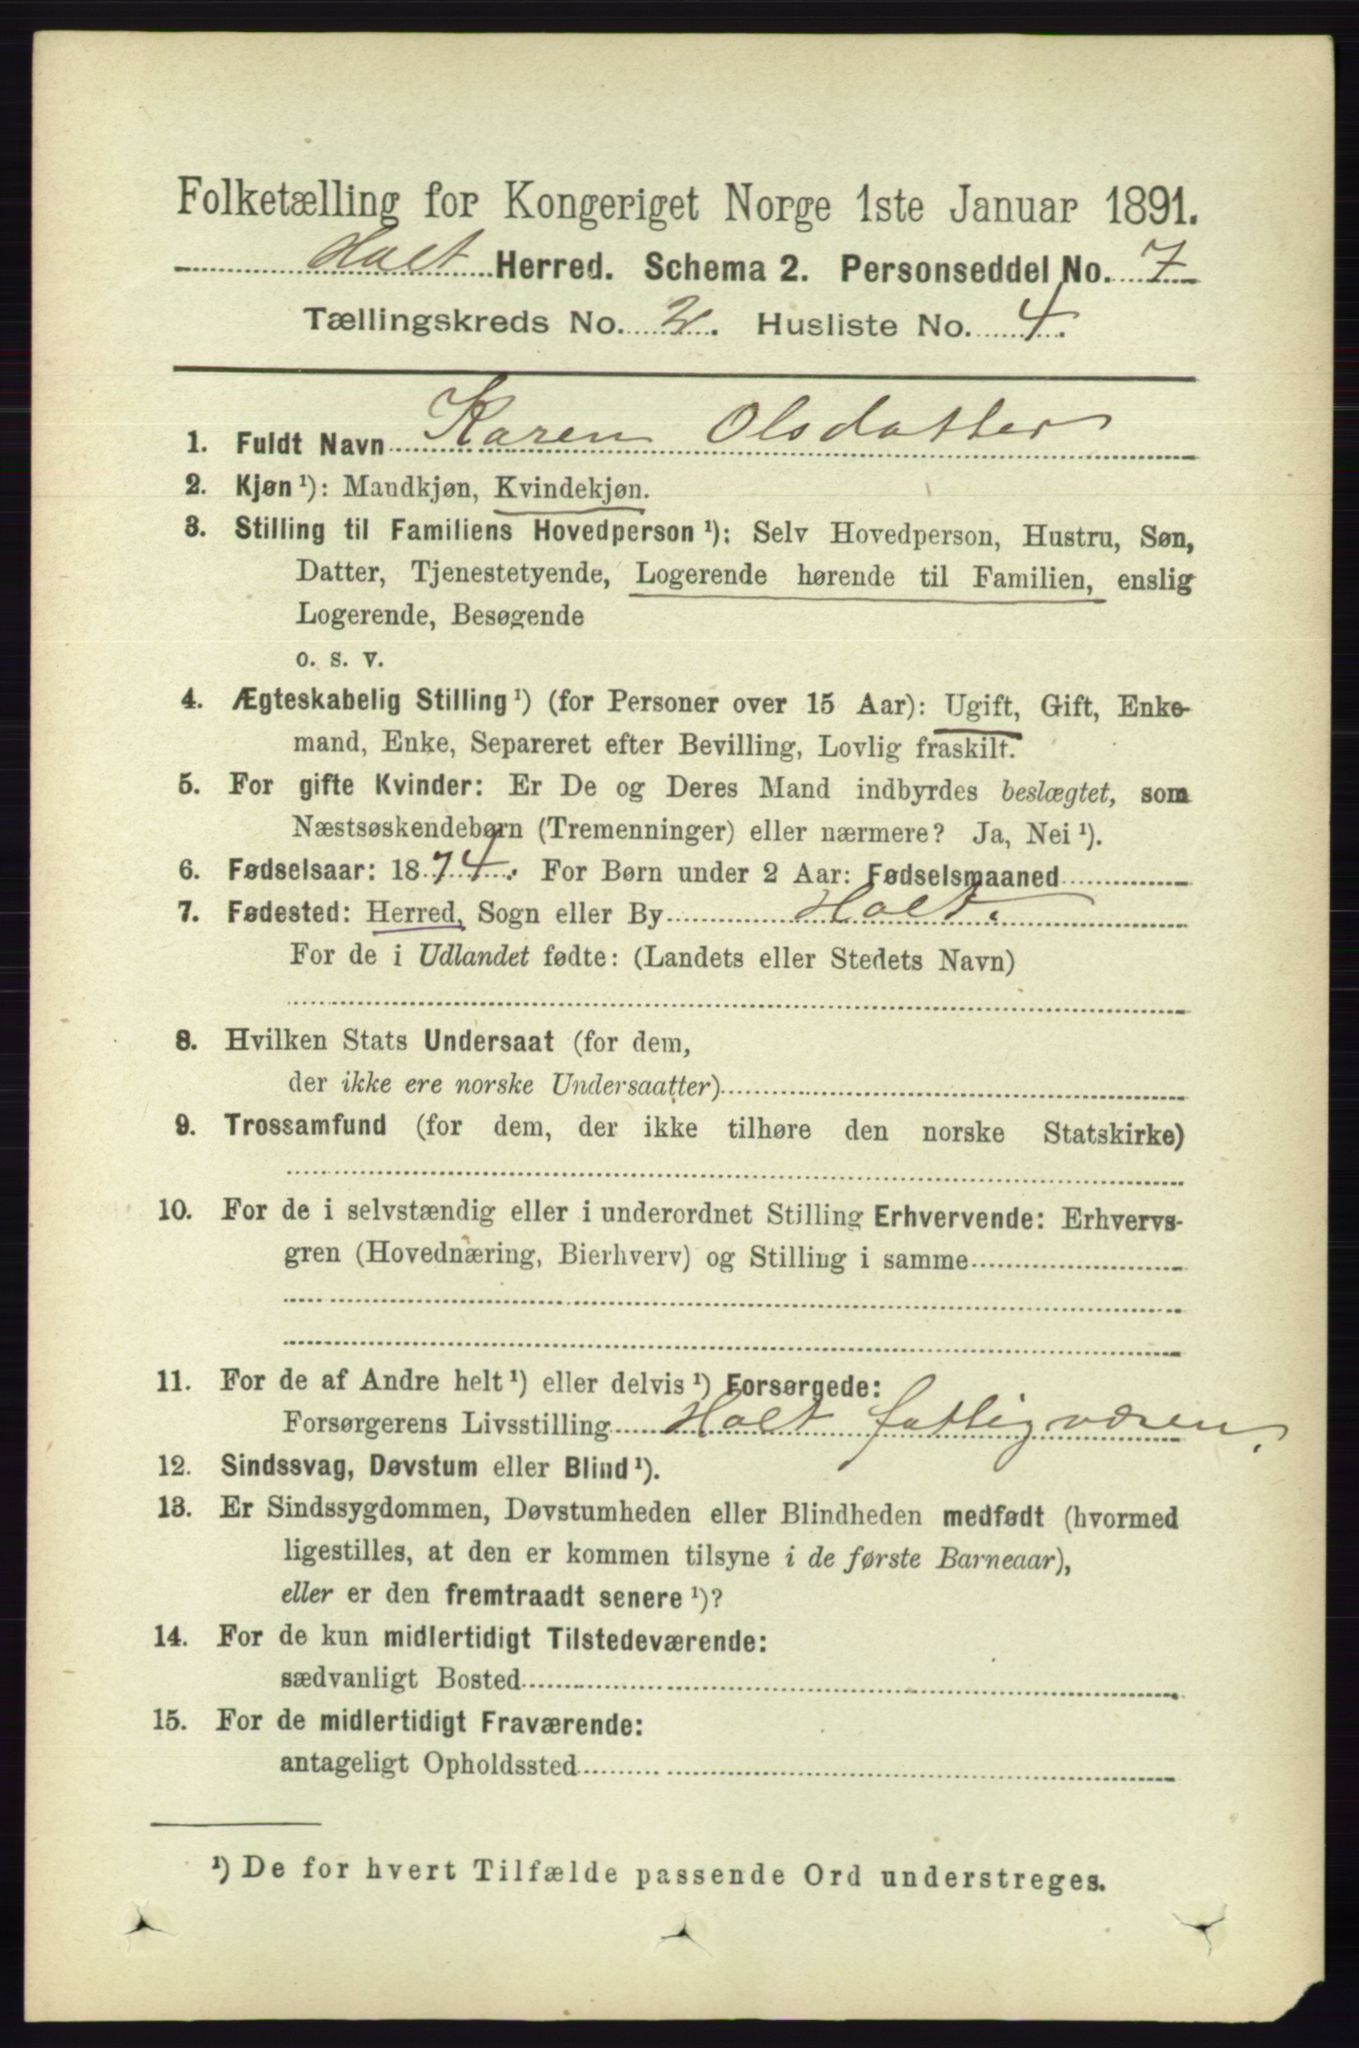 Folketælling for Kongeriget Norge 1ste Januar 1891.
Holt Herred. Schema 2. Personseddel No. 7
Tællingskreds No. 2. Husliste No. 4.
1. Fuldt Navn Karen Olsdatter
2. Kjøn¹): Mandkjøn, Kvindekjøn.
3. Stilling til Familiens Hovedperson¹): Selv Hovedperson, Hustru, Søn,
Datter, Tjenestetyende, Logerende hørende til Familien, enslig
Logerende, Besøgende
o. s. v.
4. Ægteskabelig Stilling¹) (for Personer over 15 Aar): Ugift, Gift, Enke-
mand, Enke, Separeret efter Bevilling, Lovlig fraskilt.
5. For gifte Kvinder: Er De og Deres Mand indbyrdes beslægtet, som
Næstsøskendebørn (Tremenninger) eller nærmere? Ja, Nei¹).
6. Fødselsaar: 1874. For Børn under 2 Aar: Fødselsmaaned
7. Fødested: Herred, Sogn eller By Holt.
For de i Udlandet fødte: (Landets eller Stedets Navn)
8. Hvilken Stats Undersaat (for dem,
der ikke ere norske Undersaatter)
9. Trossamfund (for dem, der ikke tilhøre den norske Statskirke)
10. For de i selvstændig eller i underordnet Stilling Erhvervende: Erhvervs-
gren (Hovednæring, Bierhverv) og Stilling i samme
11. For de af Andre helt¹) eller delvis¹) Forsørgede:
Forsørgerens Livsstilling Holt fattigvæsen.
12. Sindssvag, Døvstum eller Blind¹).
13. Er Sindssygdommen, Døvstumheden eller Blindheden medfødt (hvormed
ligestilles, at den er kommen tilsyne i de første Barneaar),
eller er den fremtraadt senere¹)?
14. For de kun midlertidigt Tilstedeværende:
sædvanligt Bosted
15. For de midlertidigt Fraværende:
antageligt Opholdssted
¹) De for hvert Tilfælde passende Ord understreges.